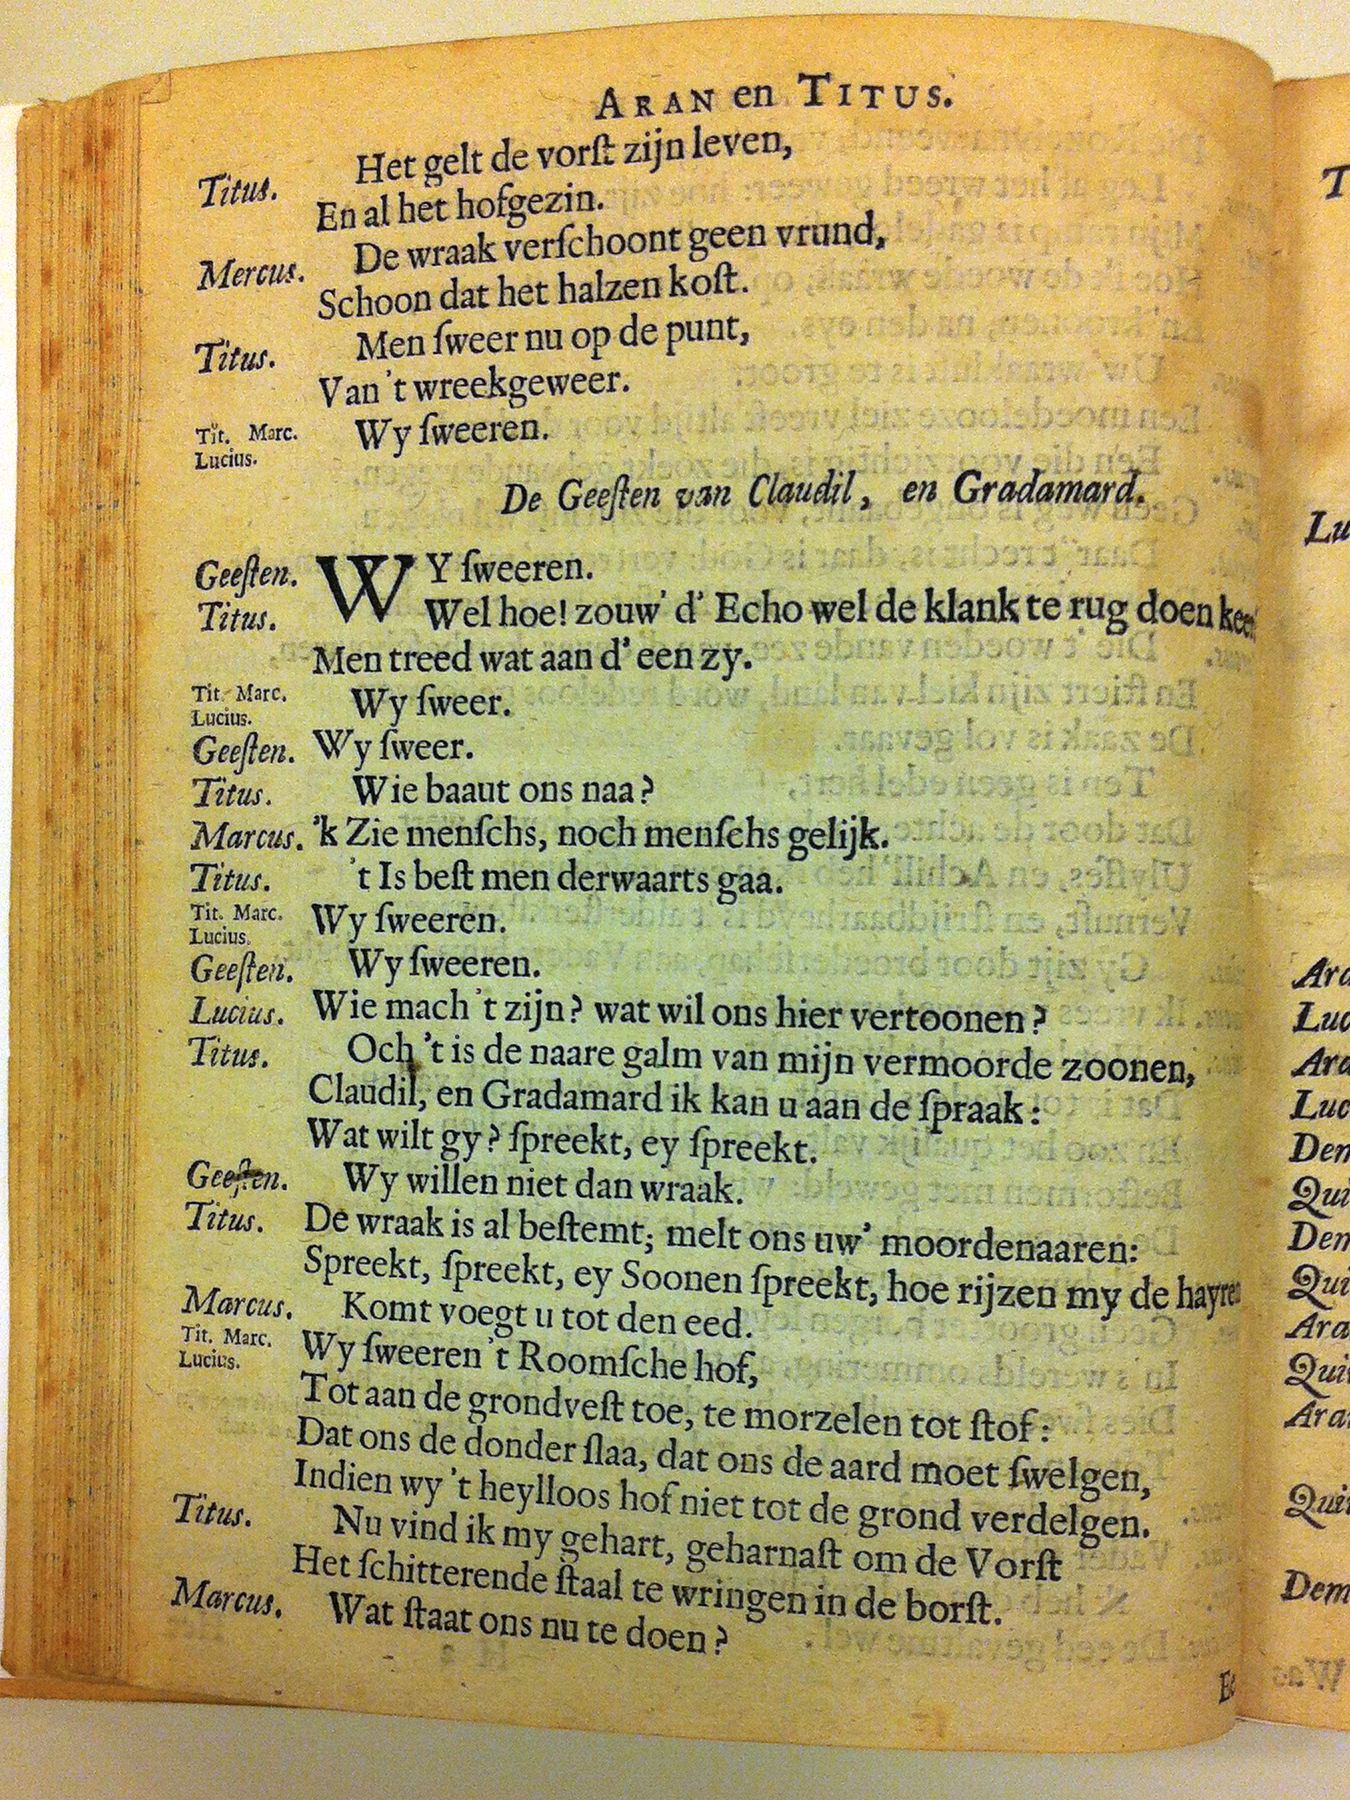 ARAN en TITUS.
Het gelt de vorſt zijn leven,
Titus. En al het hofgezin.
De wraak verſchoont geen vrund,
Mercus. Schoon dat het halzen koſt.
Men ſweer nu op de punt,
Titus. Van 't wreekgeweer.
Tit. Marc. Wy ſweeren.
Lucius.
De Geeſten van Claudil, en Gradamard.
Geeſten. WY ſweeren.
Titus. Wel hoe! zouw' d' Echo wel de klank te rug doen
Men treed wat aan d' een zy.
Tit. Marc. Wy ſweer.
Lucius.
Geeſten. Wy ſweer.
Titus. Wie baaut ons naa?
Marcus. 'k Zie menſchs, noch menſchs gelijk.
Titus. 't Is beſt men derwaarts gaa.
Tit. Marc. Wy ſweeren.
Lucius.
Geeſten. Wy ſweeren.
Lucius. Wie mach 't zijn? wat wil ons hier vertoonen?
Titus. Och 't is de naare galm van mijn vermoorde zoonen,
Claudil, en Gradamard ik kan u aan de ſpraak:
Wat wilt gy? ſpreekt, ey ſpreekt.
Geeſten. Wy willen niet dan wraak.
Titus. De wraak is al beſtemt; melt ons uw' moordenaaren:
Spreekt, ſpreekt, ey Soonen ſpreekt, hoe rijzen my de
Marcus. Komt voegt u tot den eed.
Tit. Marc. Wy ſweeren 't Roomſche hof,
Lucius.
Tot aan de grondveſt toe, te morzelen tot ſtof:
Dat ons de donder ſlaa, dat ons de aard moet ſwelgen,
Indien wy 't heylloos hof niet tot de grond verdelgen.
Titus. Nu vind ik my gehart, geharnaſt om de Vorſt
Het ſchitterende ſtaal te wringen in de borſt.
Marcus. Wat ſtaat ons nu te doen?